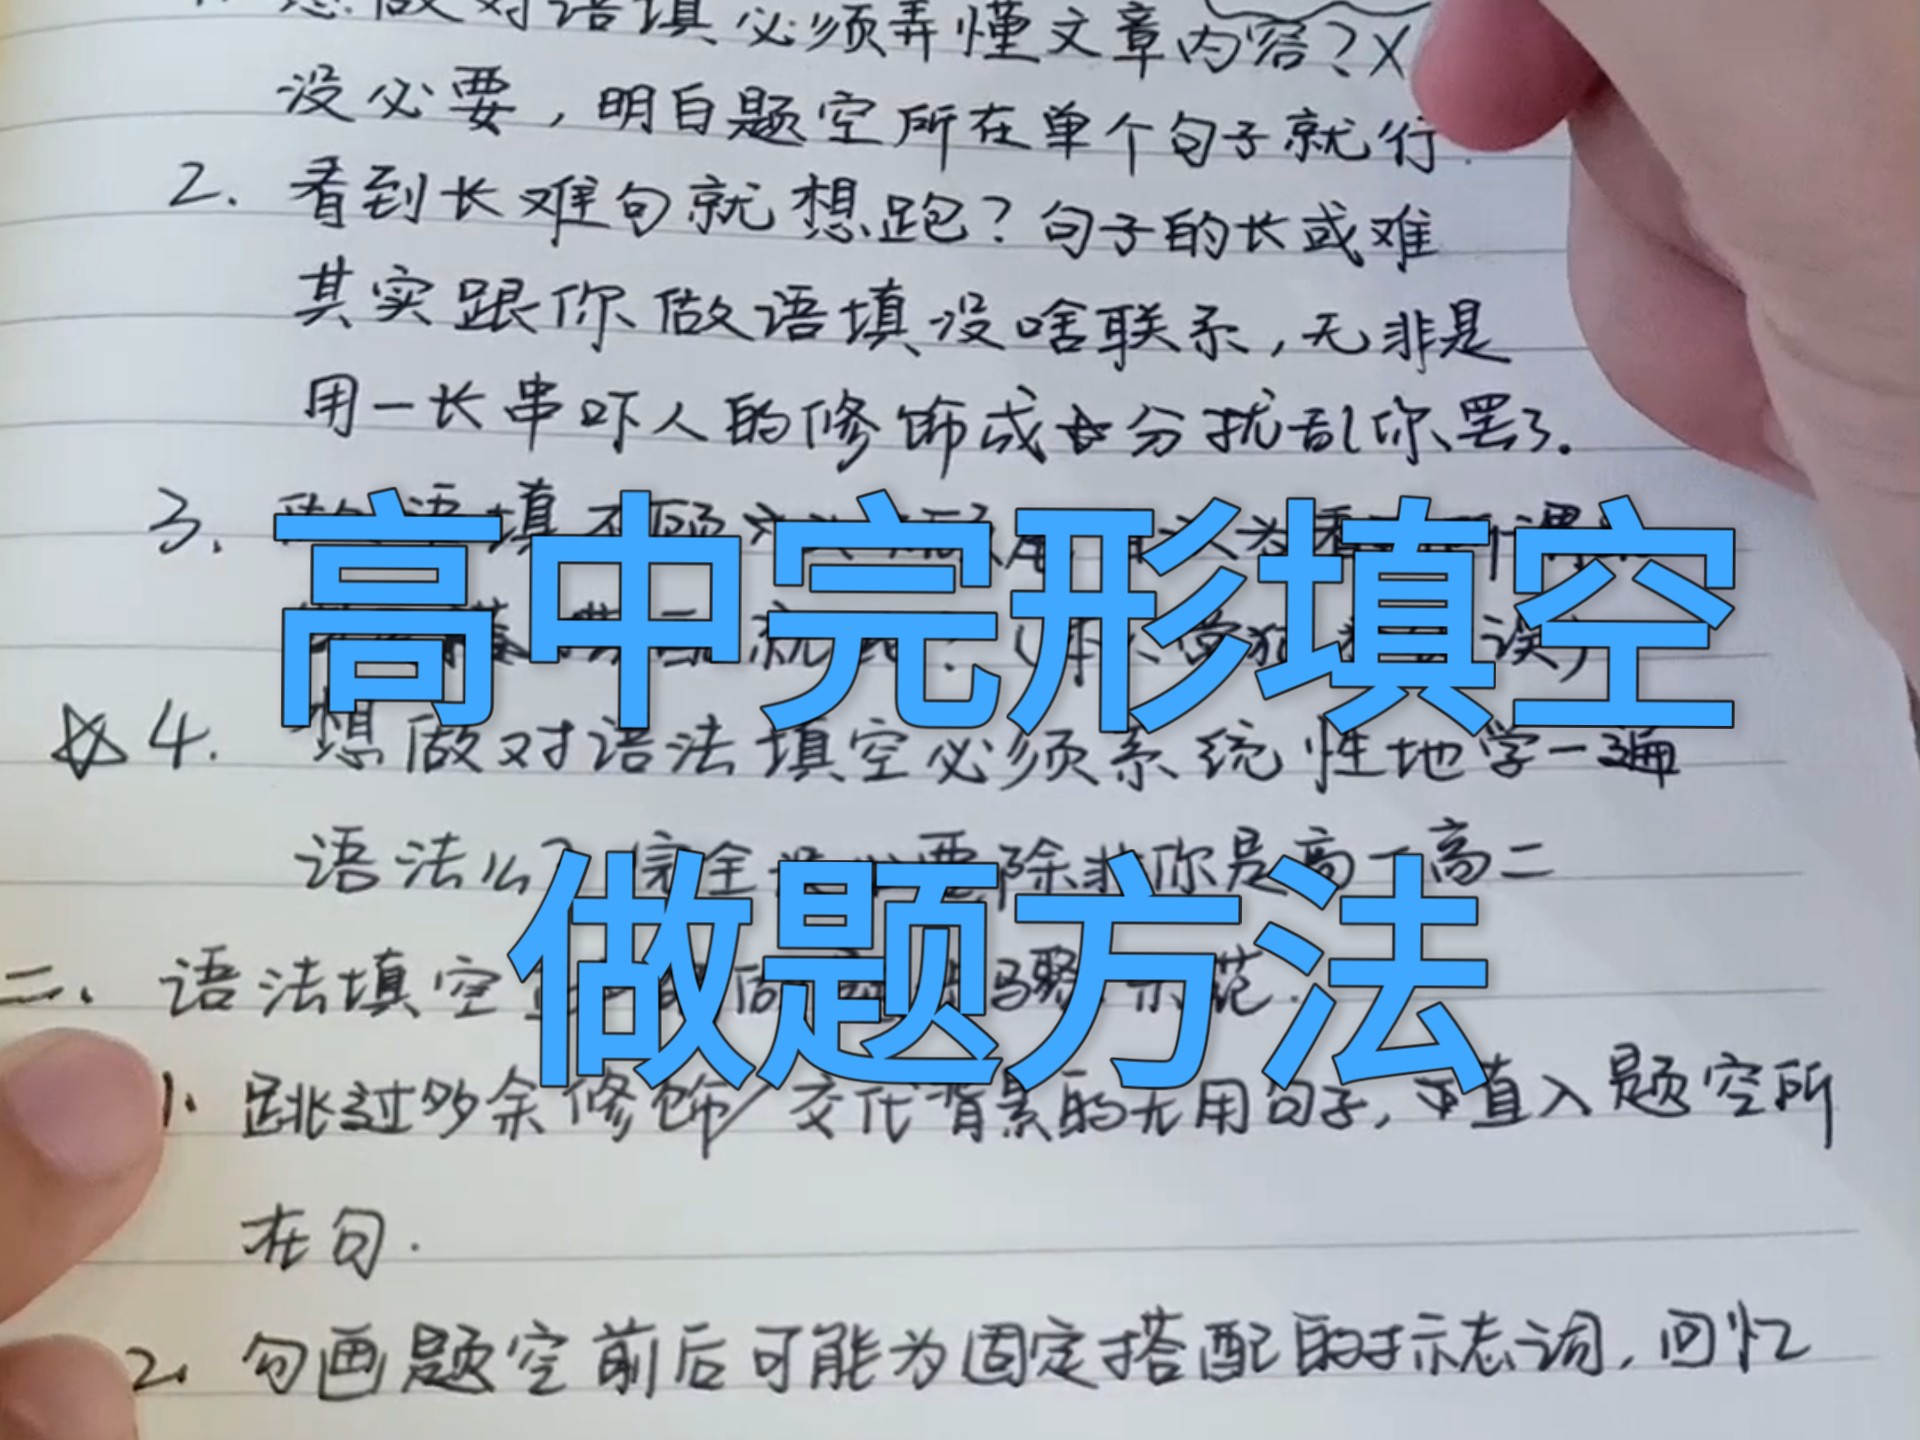 想做对语填必须弄懂文章内容?X
没必要,明白题空所在单个句子就行.
2.看到长难句就想跑?句子的长或难
其实跟你做语填没啥联系,无非是
用一长串吓人的修饰成分扰乱你罢了.
3.
高中完形填空
☆4.想做对语法填空必须系统性地学一遍
语法么?完全没必要,除非你是高一高二
做题方法
二.语法填空
1.跳过多余修饰/交代背景的无用句子,直入题空所
在句.
2.勾画题空前后可能为固定搭配的标志词,回忆